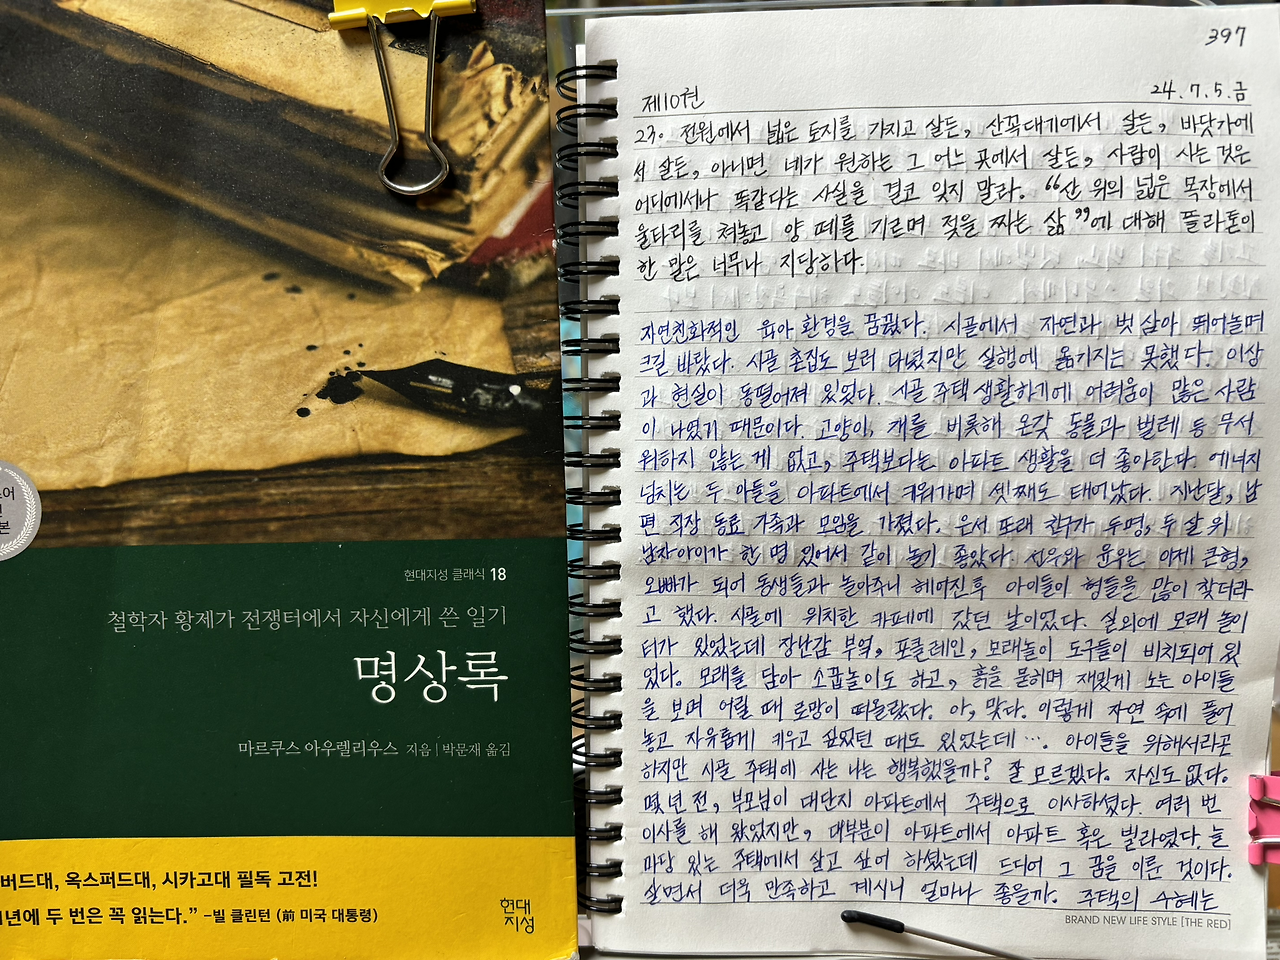 현대지성 클래식 18
철학자 황제가 전쟁터에서 자신에게 쓴 일기
명상록
마르쿠스 아우렐리우스 지음 | 박문재 옮김
버드대, 옥스퍼드대, 시카고대 필독 고전!
년에 두 번은 꼭 읽는다.” –빌 클린턴 (前 미국 대통령)
현대
지성
397
제10권 24.7.5.금
23. 전원에서 넓은 토지를 가지고 살든, 산꼭대기에서 살든, 바닷가에
서 살든, 아니면 네가 원하는 그 어느 곳에서 살든, 사람이 사는 것은
어디에서나 똑같다는 사실을 결코 잊지 말라. “산 위의 넓은 목장에서
울타리를 쳐놓고 양 떼를 기르며 젖을 짜는 삶”에 대해 플라톤이
한 말은 너무나 지당하다.
자연친화적인 육아 환경을 꿈꿨다. 시골에서 자연과 벗 삼아 뛰어놀며
크길 바랐다. 시골 촌집도 보러 다녔지만 실행에 옮기지는 못했다. 이상
과 현실이 동떨어져 있었다. 시골 주택 생활하기에 어려움이 많은 사람
이 나였기 때문이다. 고양이, 개를 비롯해 온갖 동물과 벌레 등 무서
워하지 않는 게 없고, 주택보다는 아파트 생활을 더 좋아한다. 에너지
넘치는 두 아들을 아파트에서 키워가며 셋째도 태어났다. 지난달, 남
편 직장 동료 가족과 모임을 가졌다. 은서 또래 친구가 두명, 두 살 위
남자아이가 한 명 있어서 같이 놀기 좋았다. 선우와 윤우는 이제 큰형,
오빠가 되어 동생들과 놀아주니 헤어진 후 아이들이 형들을 많이 찾더라
고 했다. 시골에 위치한 카페에 갔던 날이었다. 실외에 모래 놀이
터가 있었는데 장난감 부엌, 포클레인, 모래놀이 도구들이 비치되어 있
었다. 모래를 담아 소꿉놀이도 하고, 흙을 묻히며 재밌게 노는 아이들
을 보며 어릴 때 로망이 떠올랐다. 아, 맞다. 이렇게 자연 속에 풀어
놓고 자유롭게 키우고 싶었던 때도 있었는데…. 아이들을 위해서라곤
하지만 시골 주택에 사는 나는 행복했을까? 잘 모르겠다. 자신도 없다.
몇 년 전, 부모님이 대단지 아파트에서 주택으로 이사하셨다. 여러 번
이사를 해 왔었지만, 대부분이 아파트에서 아파트 혹은 빌라였다. 늘
마당 있는 주택에서 살고 싶어 하셨는데 드디어 그 꿈을 이룬 것이다.
살면서 더욱 만족하고 계시니 얼마나 좋을까. 주택의 수혜는
BRAND NEW LIFE STYLE [THE RED]